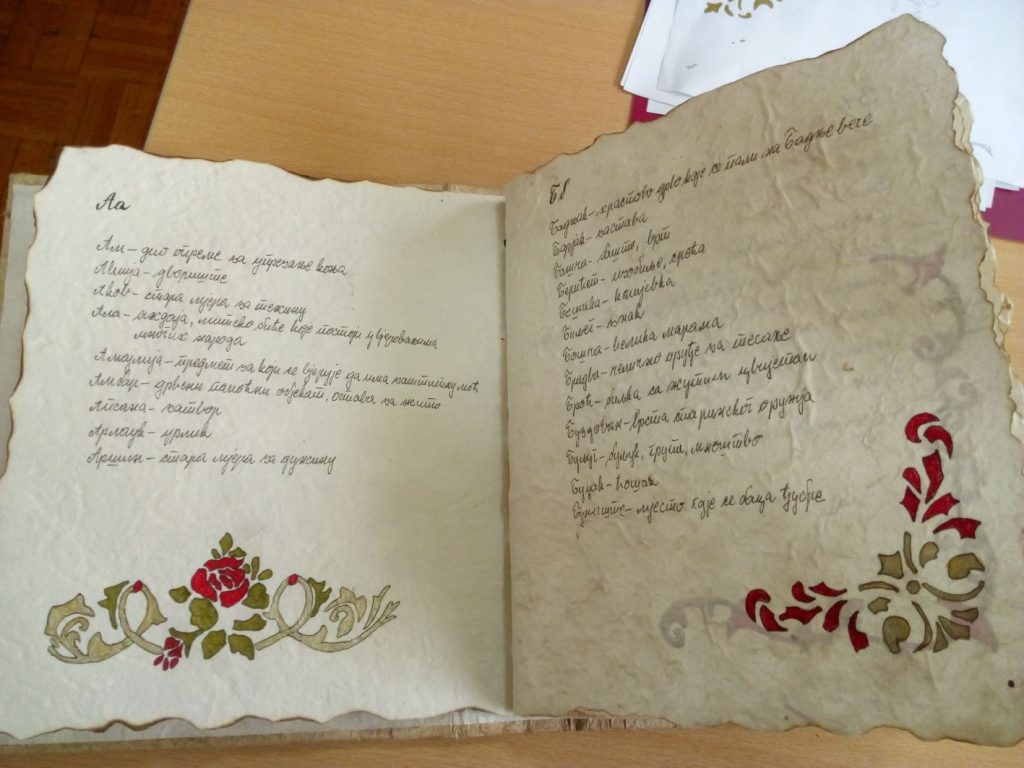 Аа
Ам - дио опреме за упрезање коња
Авлија - двориште
Аков - стара мјера за тежину
Ала - аждаја, митско биће које постоји у вјеровањима
многих народа
Амајлија - предмет за који се вјерује да има заштитну моћ
Амбар - дрвени помоћни објекат, остава за жито
Апсана - затвор
Арлаук - урлик
Аршин - стара мјера за дужину
Бб
Бадњак - храстово дрво које се пали на Бадње вече
Барјак - застава
Башча - башта, врт
Берићет - изобиље, срећа
Бешика - колијевка
Биљег - знак
Бошча - велика марама
Брадва - челично оруђе за тесање
Броћ - биљка са жутим цвијетом
Буздован - врста старинског оружја
Буљук - група, мноштво
Буџак - ћошак
Буњиште - мјесто гдје се баца ђубре